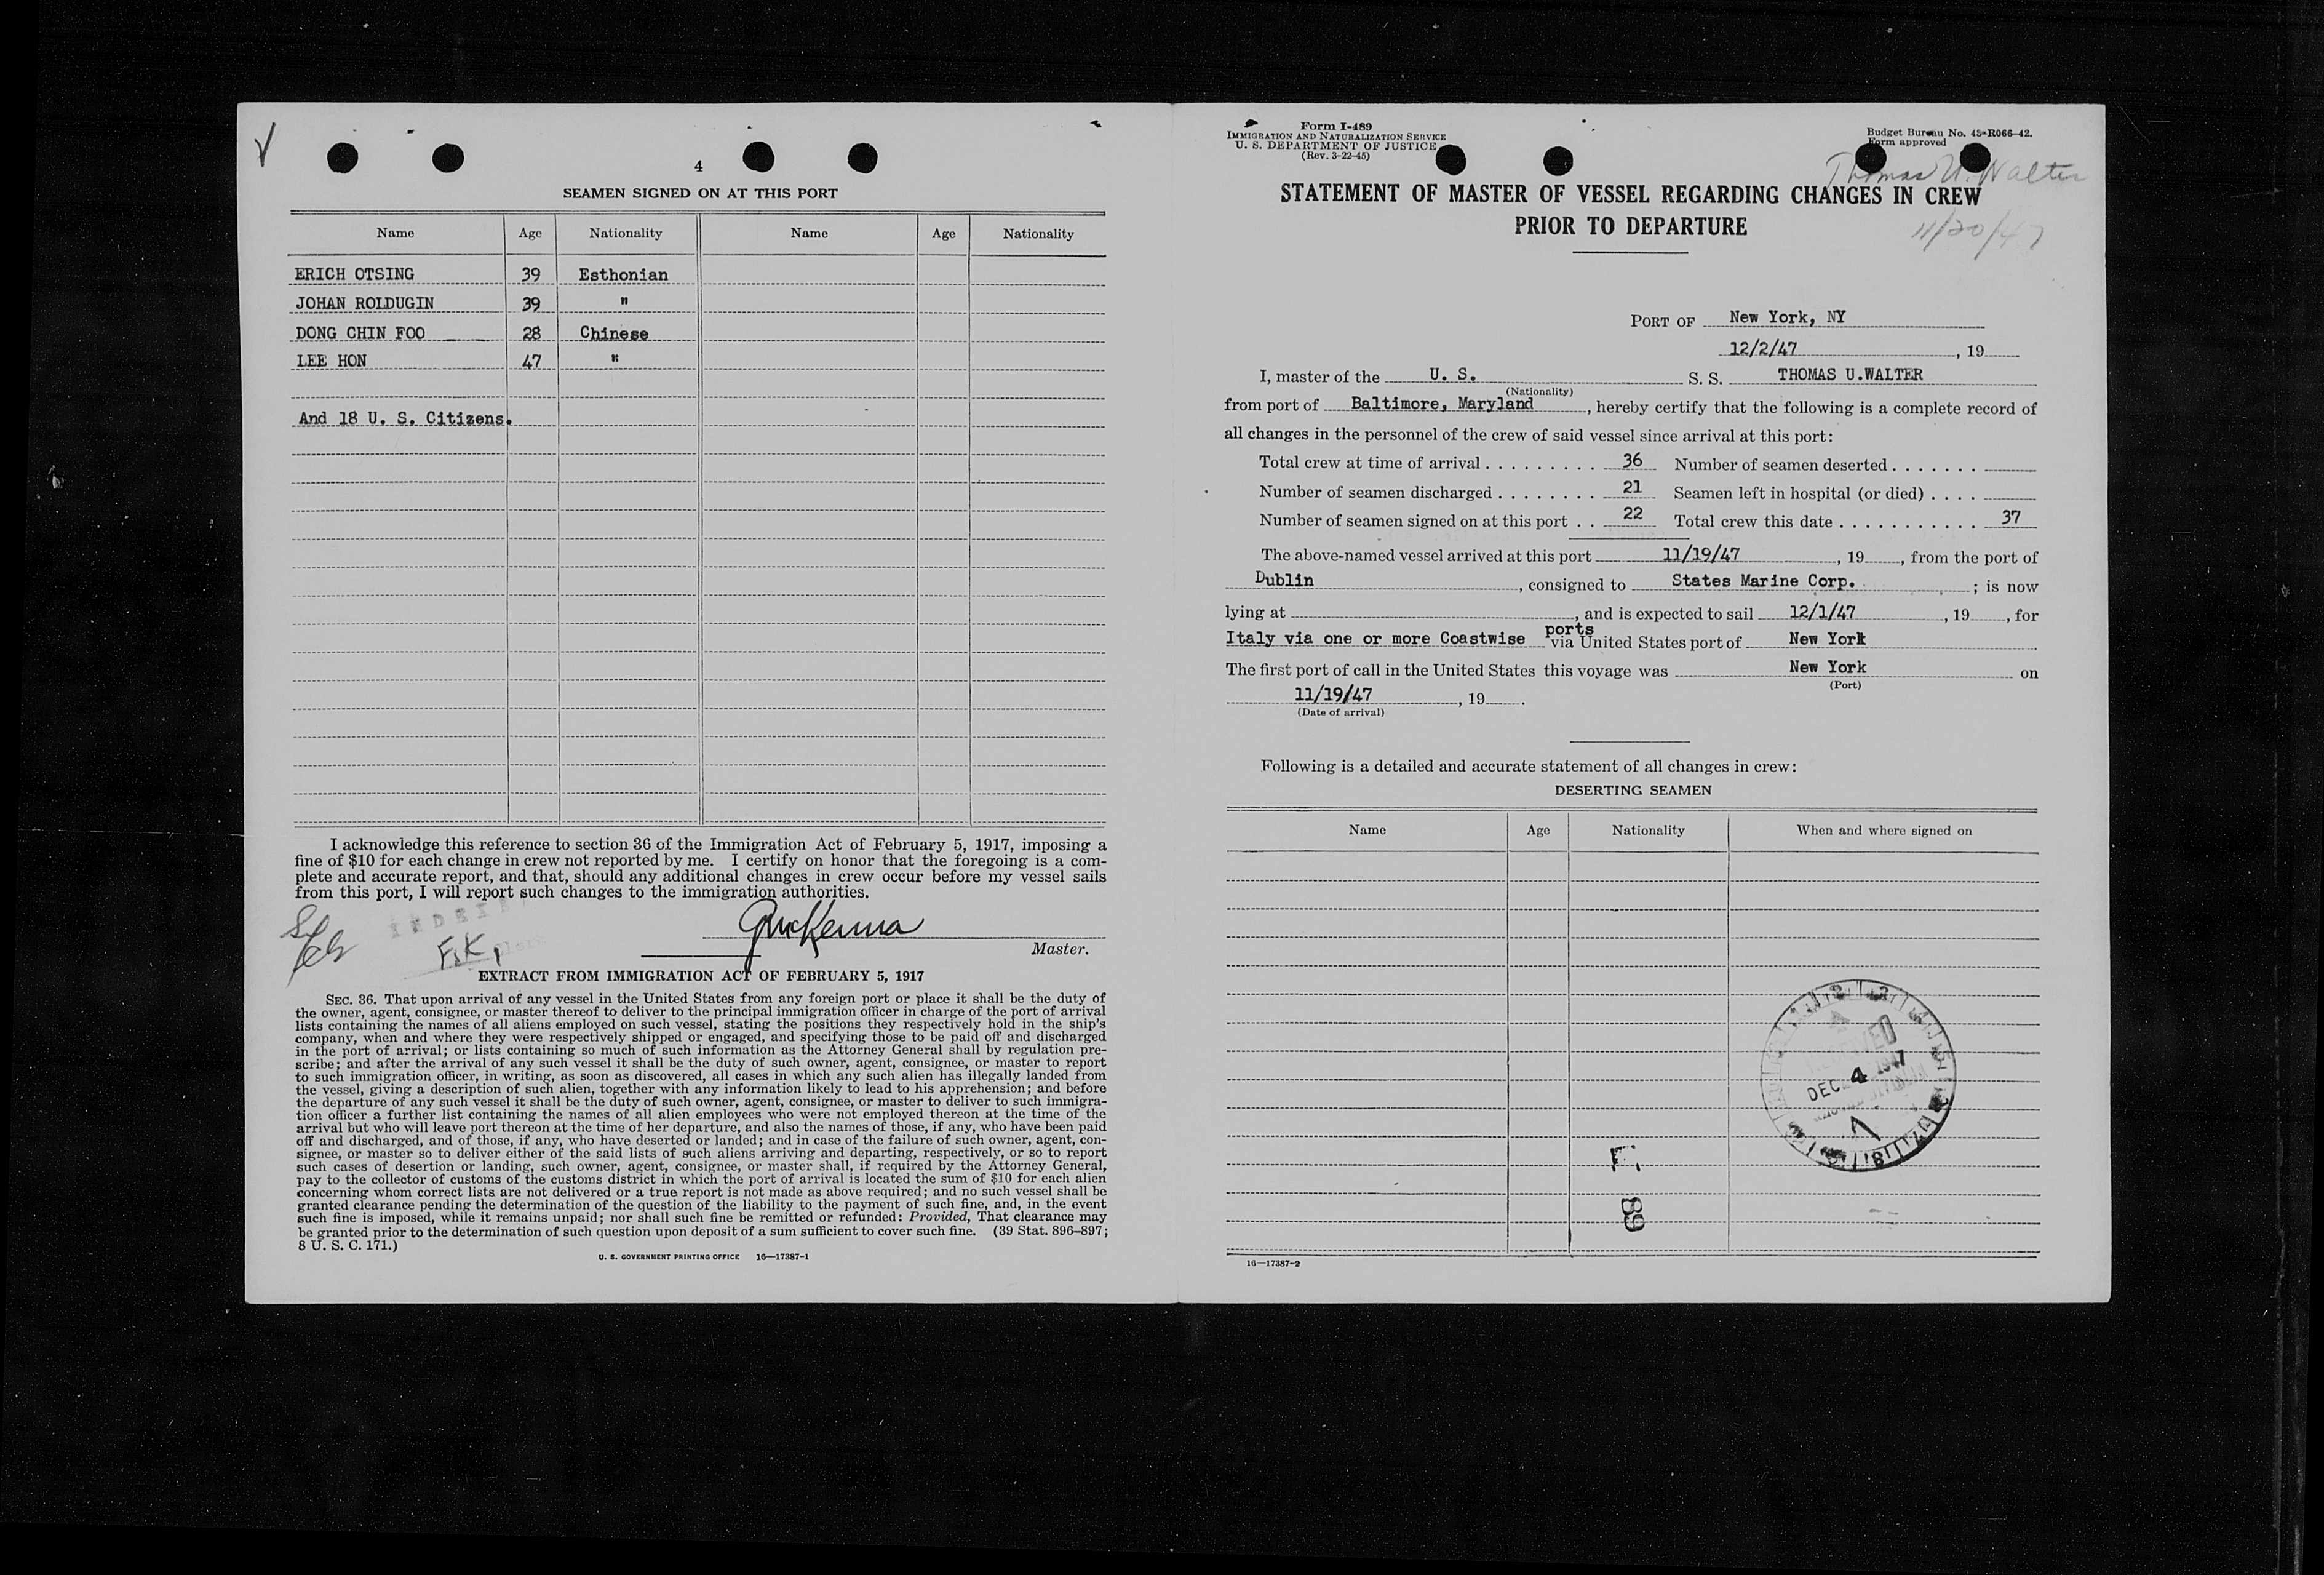 4
SEAMEN SIGNED ON AT THIS PORT
Name Age Nationality Name Age Nationality
ERICH OTSING 39 Esthonian
JOHAN ROLDUGIN 39 "
DONG CHIN FOO 28 Chinese
LEE HON 47 "
And 18 U. S. Citizens.
I acknowledge this reference to section 36 of the Immigration Act of February 5, 1917, imposing a
fine of $10 for each change in crew not reported by me. I certify on honor that the foregoing is a com-
plete and accurate report, and that, should any additional changes in crew occur before my vessel sails
from this port, I will report such changes to the immigration authorities.
F.K.
Master.
EXTRACT FROM IMMIGRATION ACT OF FEBRUARY 5, 1917
SEC. 36. That upon arrival of any vessel in the United States from any foreign port or place it shall be the duty of
the owner, agent, consignee, or master thereof to deliver to the principal immigration officer in charge of the port of arrival
lists containing the names of all aliens employed on such vessel, stating the positions they respectively hold in the ship's
company, when and where they were respectively shipped or engaged, and specifying those to be paid off and discharged
in the port of arrival; or lists containing so much of such information as the Attorney General shall by regulation pre-
scribe; and after the arrival of any such vessel it shall be the duty of such owner, agent, consignee, or master to report
to such immigration officer, in writing, as soon as discovered, all cases in which any such alien has illegally landed from
the vessel, giving a description of such alien, together with any information likely to lead to his apprehension; and before
the departure of any such vessel it shall be the duty of such owner, agent, consignee, or master to deliver to such immigra-
tion officer a further list containing the names of all alien employees who were not employed thereon at the time of the
arrival but who will leave port thereon at the time of her departure, and also the names of those, if any, who have been paid
off and discharged, and of those, if any, who have deserted or landed; and in case of the failure of such owner, agent, con-
signee, or master so to deliver either of the said lists of such aliens arriving and departing, respectively, or so to report
such cases of desertion or landing, such owner, agent, consignee, or master shall, if required by the Attorney General,
pay to the collector of customs of the customs district in which the port of arrival is located the sum of $10 for each alien
concerning whom correct lists are not delivered or a true report is not made as above required; and no such vessel shall be
granted clearance pending the determination of the question of the liability to the payment of such fine, and, in the event
such fine is imposed, while it remains unpaid; nor shall such fine be remitted or refunded: Provided, That clearance may
be granted prior to the determination of such question upon deposit of a sum sufficient to cover such fine. (39 Stat. 896–897;
8 U. S. C. 171.)
U. S. GOVERNMENT PRINTING OFFICE 16—17387-1
Form I-489
IMMIGRATION AND NATURALIZATION SERVICE
U. S. DEPARTMENT OF JUSTICE
(Rev. 3-22-45)
Budget Bureau No. 43-R066-42.
Form approved
Thomas U. Walter
STATEMENT OF MASTER OF VESSEL REGARDING CHANGES IN CREW
PRIOR TO DEPARTURE
11/20/47
PORT OF New York, NY
12/2/47, 19
I, master of the U. S. S. S. THOMAS U.WALTER
(Nationality)
from port of Baltimore, Maryland, hereby certify that the following is a complete record of
all changes in the personnel of the crew of said vessel since arrival at this port:
Total crew at time of arrival . . . . . . . . . 36 Number of seamen deserted . . . . . . .
Number of seamen discharged . . . . . . . . 21 Seamen left in hospital (or died) . . . .
Number of seamen signed on at this port . . 22 Total crew this date . . . . . . . . . . . 37
The above-named vessel arrived at this port 11/19/47, 19, from the port of
Dublin, consigned to States Marine Corp.; is now
lying at , and is expected to sail 12/1/47, 19, for
Italy via one or more Coastwise ports via United States port of New York
The first port of call in the United States this voyage was New York on
(Port)
11/19/47, 19.
(Date of arrival)
Following is a detailed and accurate statement of all changes in crew:
DESERTING SEAMEN
Name Age Nationality When and where signed on
RECEIVED
DEC 4 1947
89
16—17387-2